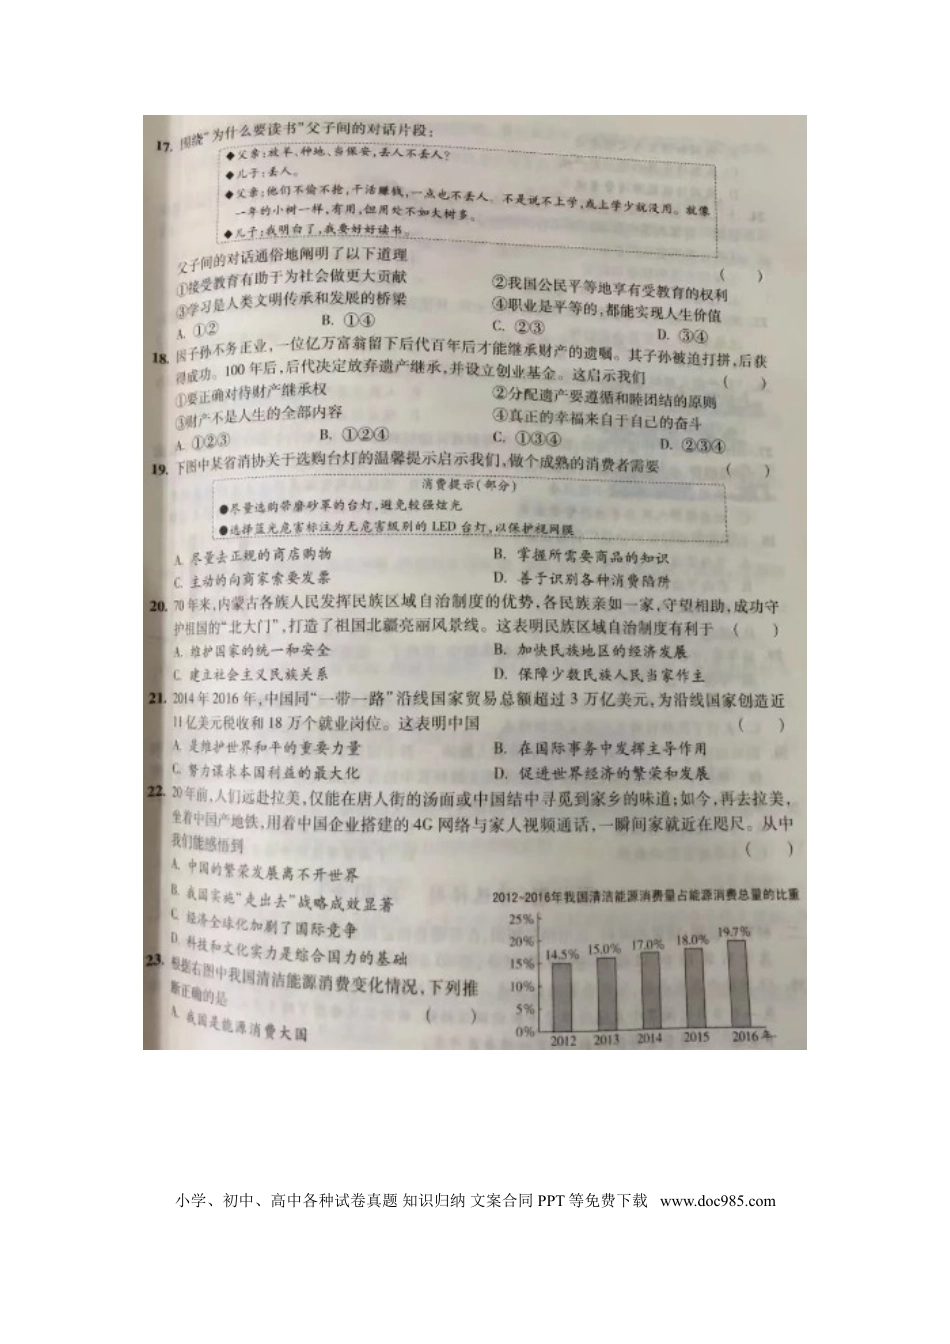 17. 围绕“为什么要读书”父子间的对话片段：
◆父亲:放羊、种地、当保安,丢人不丢人?
◆儿子:丢人。
◆父亲:他们不偷不抢,干活赚钱,一点也不丢人。不是说不上学,或上学少就没用。就像
一年的小树一样,有用,但用处不如大树多。
◆儿子:我明白了,我要好好读书。
父子间的对话通俗地阐明了以下道理 (　　)
①接受教育有助于为社会做更大贡献 ②我国公民平等地享有受教育的权利
③学习是人类文明传承和发展的桥梁 ④职业是平等的,都能实现人生价值
A. ①② B. ①④ C. ②③ D. ③④
18. 因子孙不务正业,一位亿万富翁留下后代百年后才能继承财产的遗嘱。其子孙被迫打拼,后获
得成功。100 年后,后代决定放弃遗产继承,并设立创业基金。这启示我们 (　　)
①要正确对待财产继承权 ②分配遗产要遵循和睦团结的原则
③财产不是人生的全部内容 ④真正的幸福来自于自己的奋斗
A. ①②③ B. ①②④ C. ①③④ D. ②③④
19. 下图中某省消协关于选购台灯的温馨提示启示我们,做个成熟的消费者需要 (　　)
消费提示(部分)
●尽量选购带磨砂罩的台灯,避免较强炫光
●选择蓝光危害标注为无危害级别的 LED 台灯,以保护视网膜
A. 尽量去正规的商店购物 B. 掌握所需要商品的知识
C. 主动的向商家索要发票 D. 善于识别各种消费陷阱
20. 70 年来,内蒙古各族人民发挥民族区域自治制度的优势,各民族亲如一家,守望相助,成功守
护祖国的“北大门”,打造了祖国北疆亮丽风景线。这表明民族区域自治制度有利于 (　　)
A. 维护国家的统一和安全 B. 加快民族地区的经济发展
C. 建立社会主义民族关系 D. 保障少数民族人民当家作主
21. 2014 年 2016 年,中国同“一带一路”沿线国家贸易总额超过 3 万亿美元,为沿线国家创造近
11 亿美元税收和 18 万个就业岗位。这表明中国 (　　)
A. 是维护世界和平的重要力量 B. 在国际事务中发挥主导作用
C. 努力谋求本国利益的最大化 D. 促进世界经济的繁荣和发展
22. 20 年前,人们远赴拉美,仅能在唐人街的汤面或中国结中寻觅到家乡的味道;如今,再去拉美,
坐着中国产地铁,用着中国企业搭建的 4G 网络与家人视频通话,一瞬间家就近在咫尺。从中
我们能感悟到 (　　)
A. 中国的繁荣发展离不开世界
B. 我国实施“走出去”战略成效显著
C. 经济全球化加剧了国际竞争
D. 科技和文化实力是综合国力的基础
23. 根据右图中我国清洁能源消费变化情况,下列推
断正确的是 (　　)
A. 我国是能源消费大国
2012-2016年我国清洁能源消费量占能源消费总量的比重
25%
20%
15%
10%
5%
0%
14.5% 15.0% 17.0% 18.0% 19.7%
2012 2013 2014 2015 2016 年
小学、初中、高中各种试卷真题 知识归纳 文案合同 PPT 等免费下载 www.doc985.com